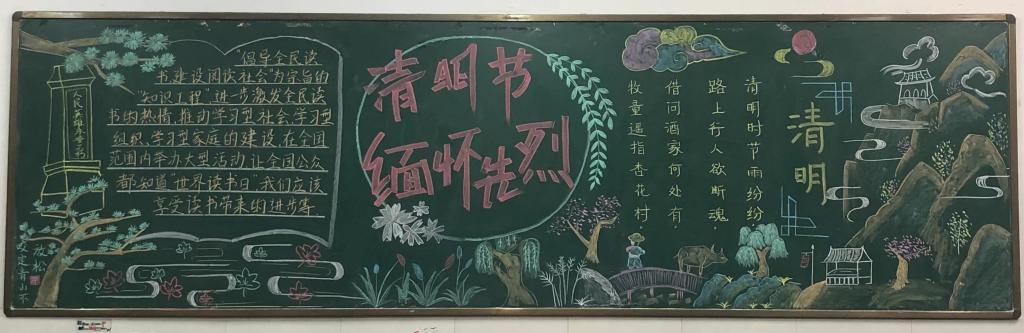 人民英雄永垂不朽
"倡导全民读
书,建设阅读社会"为宗旨的
"知识工程",进一步激发全民读
书的热情,推动学习型社会、学习型
组织、学习型家庭的建设,在全国
范围内举办大型活动,让全国公众
都知道"世界读书日",我们应该
享受读书带来的进步等
咬定青山不
清明节
缅怀先烈
清明
清明时节雨纷纷,
路上行人欲断魂。
借问酒家何处有,
牧童遥指杏花村